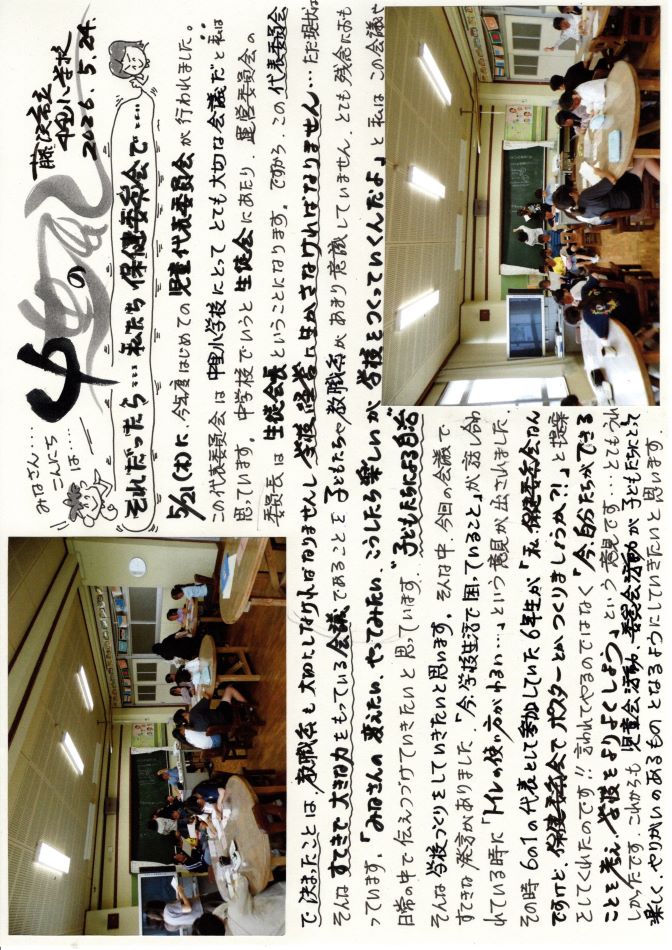 みなさん…
こんにちは…
中里の風
藤沢市立
中里小学校
2026.5.24.
それだったら…私たち保健委員会で…
5/21(木)に、今年度はじめての児童代表委員会が行われました。
この代表委員会は中里小学校にとってとても大切な会議だと私は
思っています。中学校でいうと生徒会にあたり、運営委員会の
委員長は生徒会長ということになります。ですから、この代表委員会
で決まったことは、教職員も大切にしなければなりませんし学校運営に生かさなければなりません…ただ現状は
そんなすてきで大きな力をもっている会議であることを子どもたちや教職員があまり意識していません。とても残念におも
っています。「みなさんの変えたい、やってみたい、こうしたら楽しいが学校をつくっていくんだよ」と私はこの会議や
日常の中で伝えつづけていきたいと思っています…"子どもたちによる自治"
そんな学校づくりをしていきたいと思います。そんな中、今回の会議で
すてきな発言がありました。「今、学校生活で困っていること」が話し合わ
れている時に「トイレの使い方がわるい…」という意見が出されました
その時、6の1の代表として参加していた6年生が「私、保健委員会なん
ですけど、保健委員会でポスターとかつくりましょうか?!」と提案
としてくれたのです!!言われてやるのではなく「今、自分たちができる
ことを考え、学校をよりよくしよう」という意見です…とてもうれ
しかったです。これからも児童会活動、委員会活動が子どもたちにとって
楽しく、やりがいのあるものとなるようにしていきたいと思います。